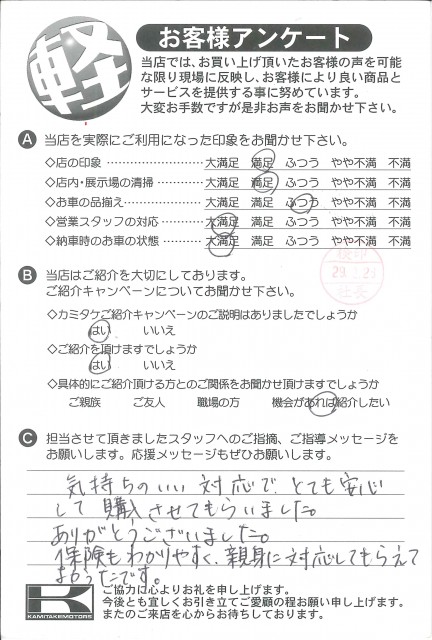 軽
お客様アンケート
当店では、お買い上げ頂いたお客様の声を可能
な限り現場に反映し、お客様により良い商品と
サービスを提供する事に努めています。
大変お手数ですが是非お声をお聞かせ下さい。
A 当店を実際にご利用になった印象をお聞かせ下さい。
◇店の印象 ……………………… 大満足 満足 ふつう やや不満 不満
◇店内・展示場の清掃 ………… 大満足 満足 ふつう やや不満 不満
◇お車の品揃え………………… 大満足 満足 ふつう やや不満 不満
◇営業スタッフの対応 ………… 大満足 満足 ふつう やや不満 不満
◇納車時のお車の状態 ………… 大満足 満足 ふつう やや不満 不満
B 当店はご紹介を大切にしております。
ご紹介キャンペーンについてお聞かせ下さい。
社長
◇カミタケご紹介キャンペーンのご説明はありましたでしょうか
はい いいえ
◇ご紹介を頂けますでしょうか
はい いいえ
◇具体的にご紹介頂ける方とのご関係をお聞かせ頂けますでしょうか
ご親族 ご友人 職場の方 機会があれば紹介したい
C 担当させて頂きましたスタッフへのご指摘、ご指導メッセージを
お願いします。応援メッセージもぜひお願いします。
気持ちのいい対応で、とても安心
して購入させてもらいました。
ありがとうございました。
保険もわかりやすく、親身に対応してもらえて
よかったです。
K
KAMITAKEMOTORS
ご協力に心よりお礼を申し上げます。
今後とも宜しくお引き立てご愛顧の程お願い申し上げます。
またのご来店を心からお待ちしております。